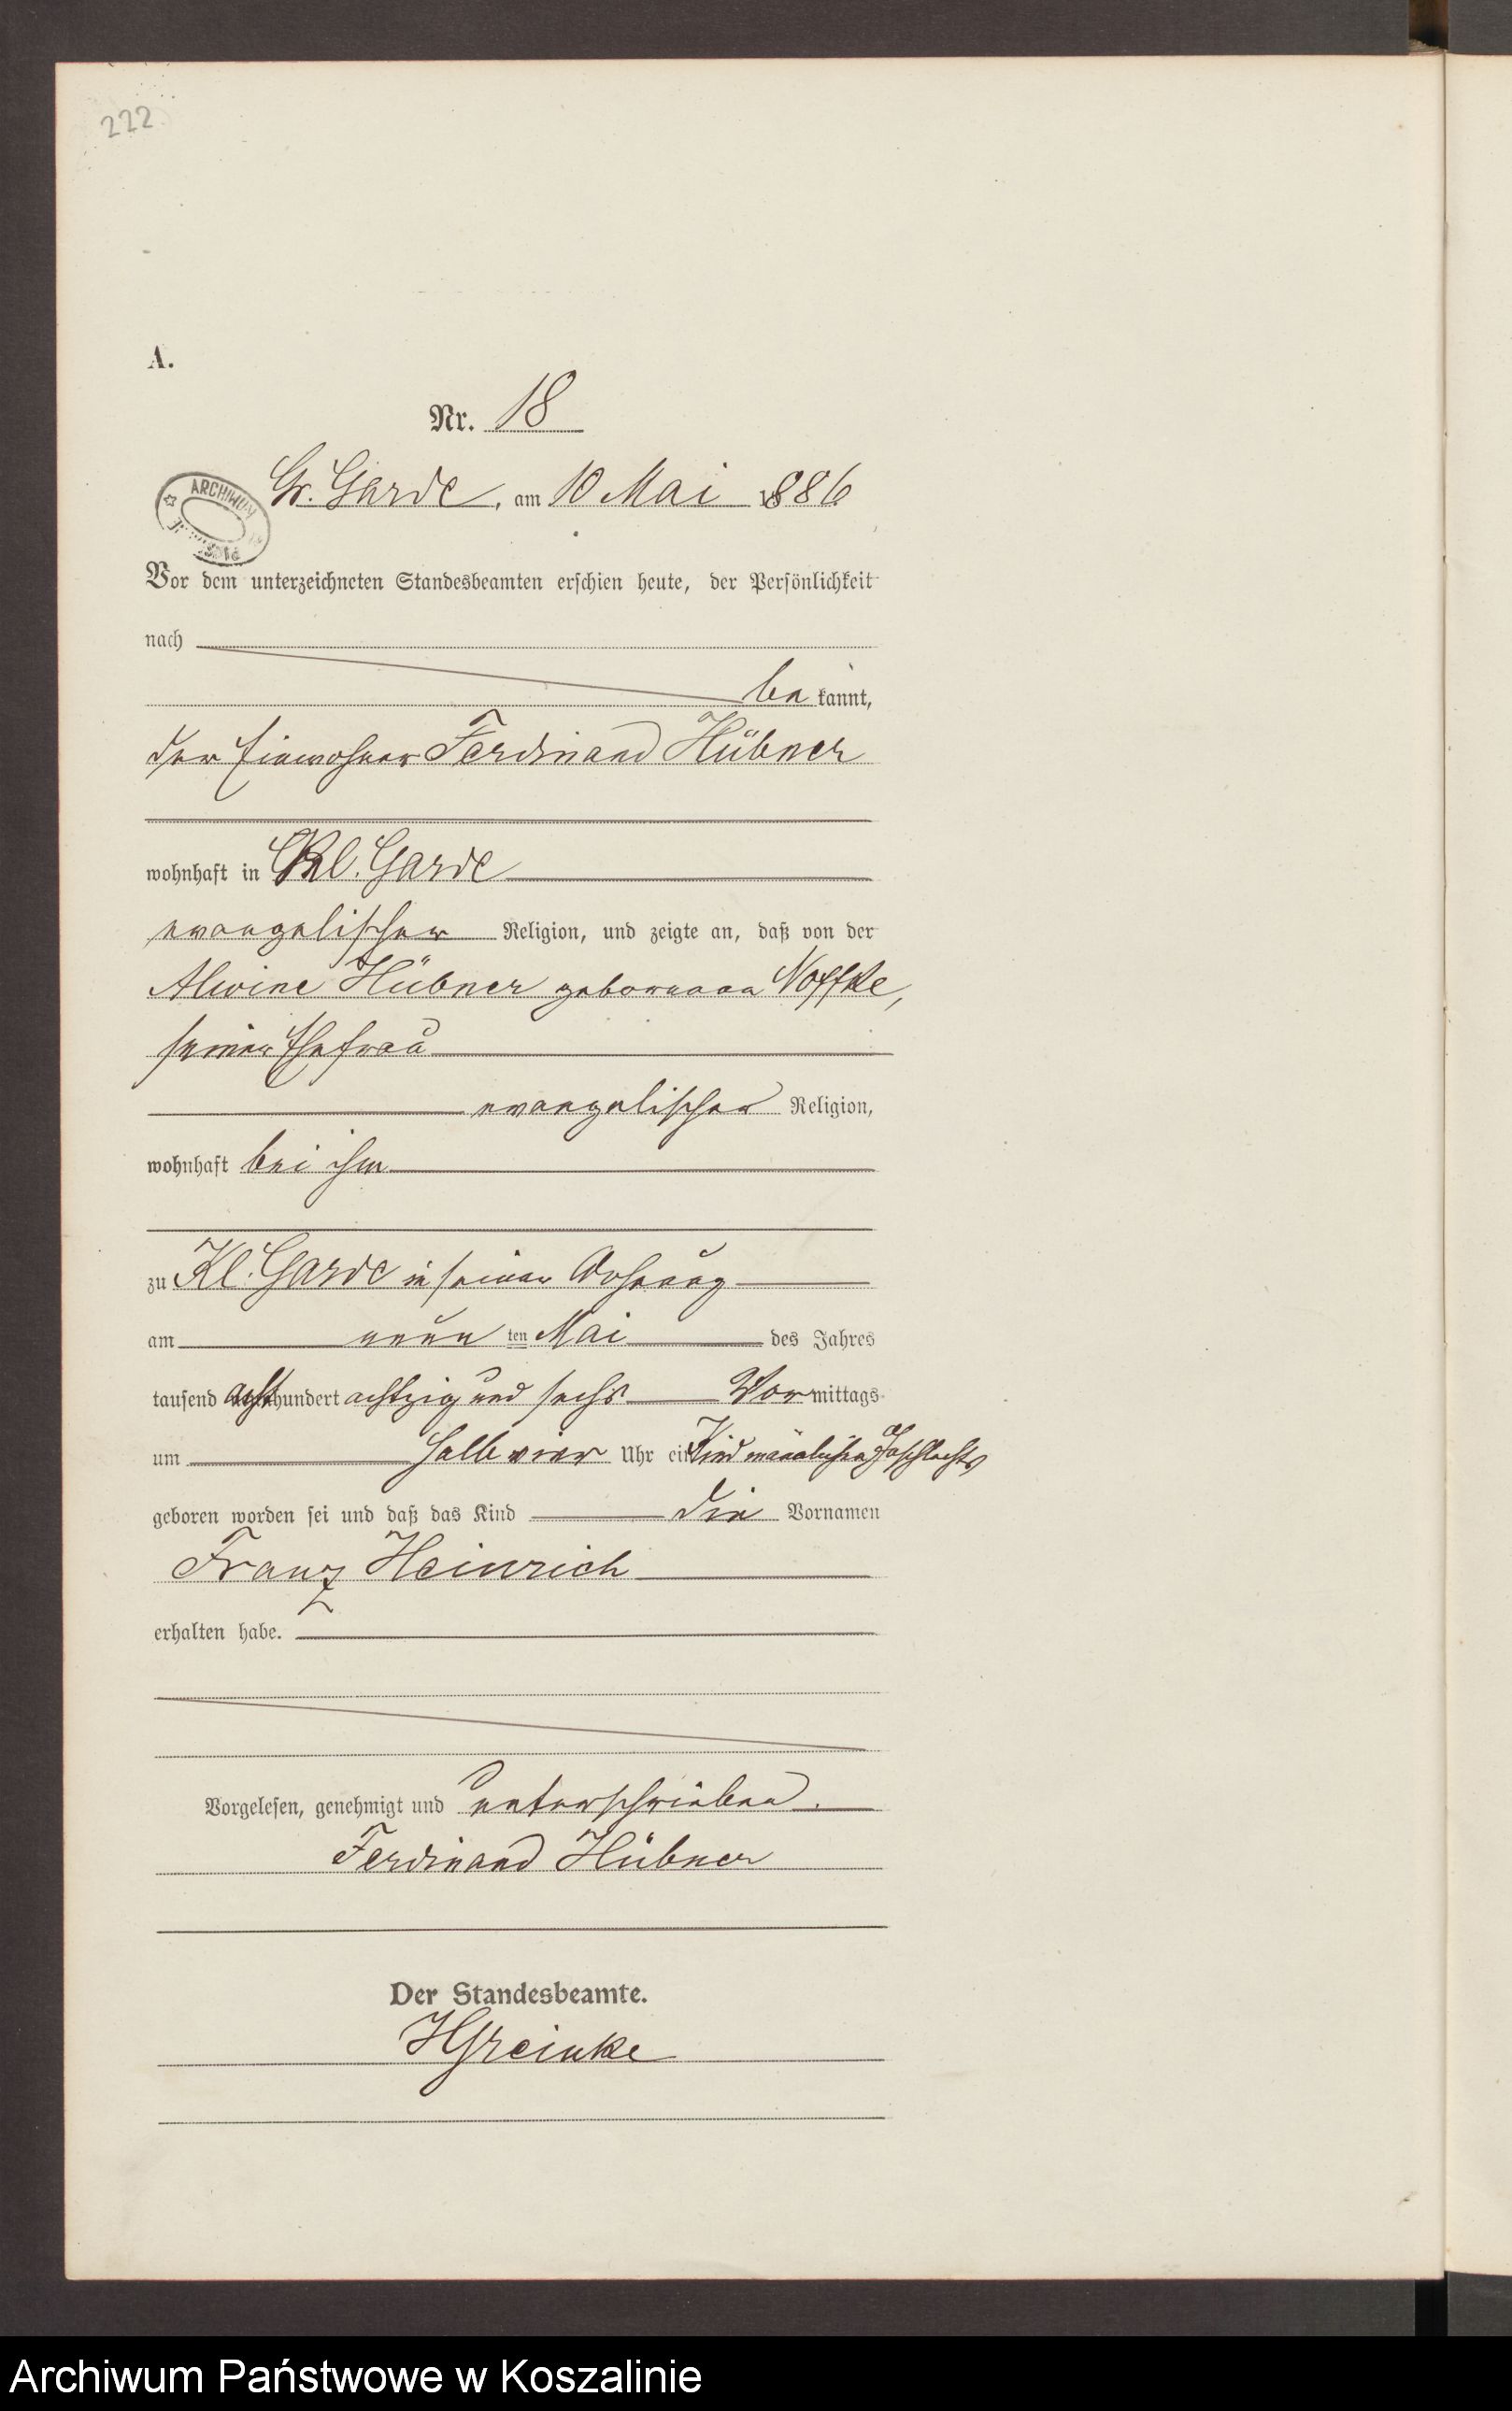 222
A.
Nr. 18
ARCHIWUM
Gr. Garde, am 10 Mai 1886
Vor dem unterzeichneten Standesbeamten erschien heute, der Persönlichkeit
nach
be kannt,
der Einwohner Ferdinand Hübner
wohnhaft in Kl. Garde
evangelischer Religion, und zeigte an, daß von der
Alwine Hübner geborenen Noffke,
seiner Ehefrau
evangelischer Religion,
wohnhaft bei ihm
zu Kl. Garde in seiner Wohnung
am neun ten Mai des Jahres
tausend acht hundert achtzig und sechs Vor mittags
um halb vier Uhr ein Kind männlichen Geschlechts
geboren worden sei und daß das Kind die Vornamen
Franz Heinrich
erhalten habe.
Vorgelesen, genehmigt und unterschrieben.
Ferdinand Hübner
Der Standesbeamte.
HGreinke
Archiwum Państwowe w Koszalinie